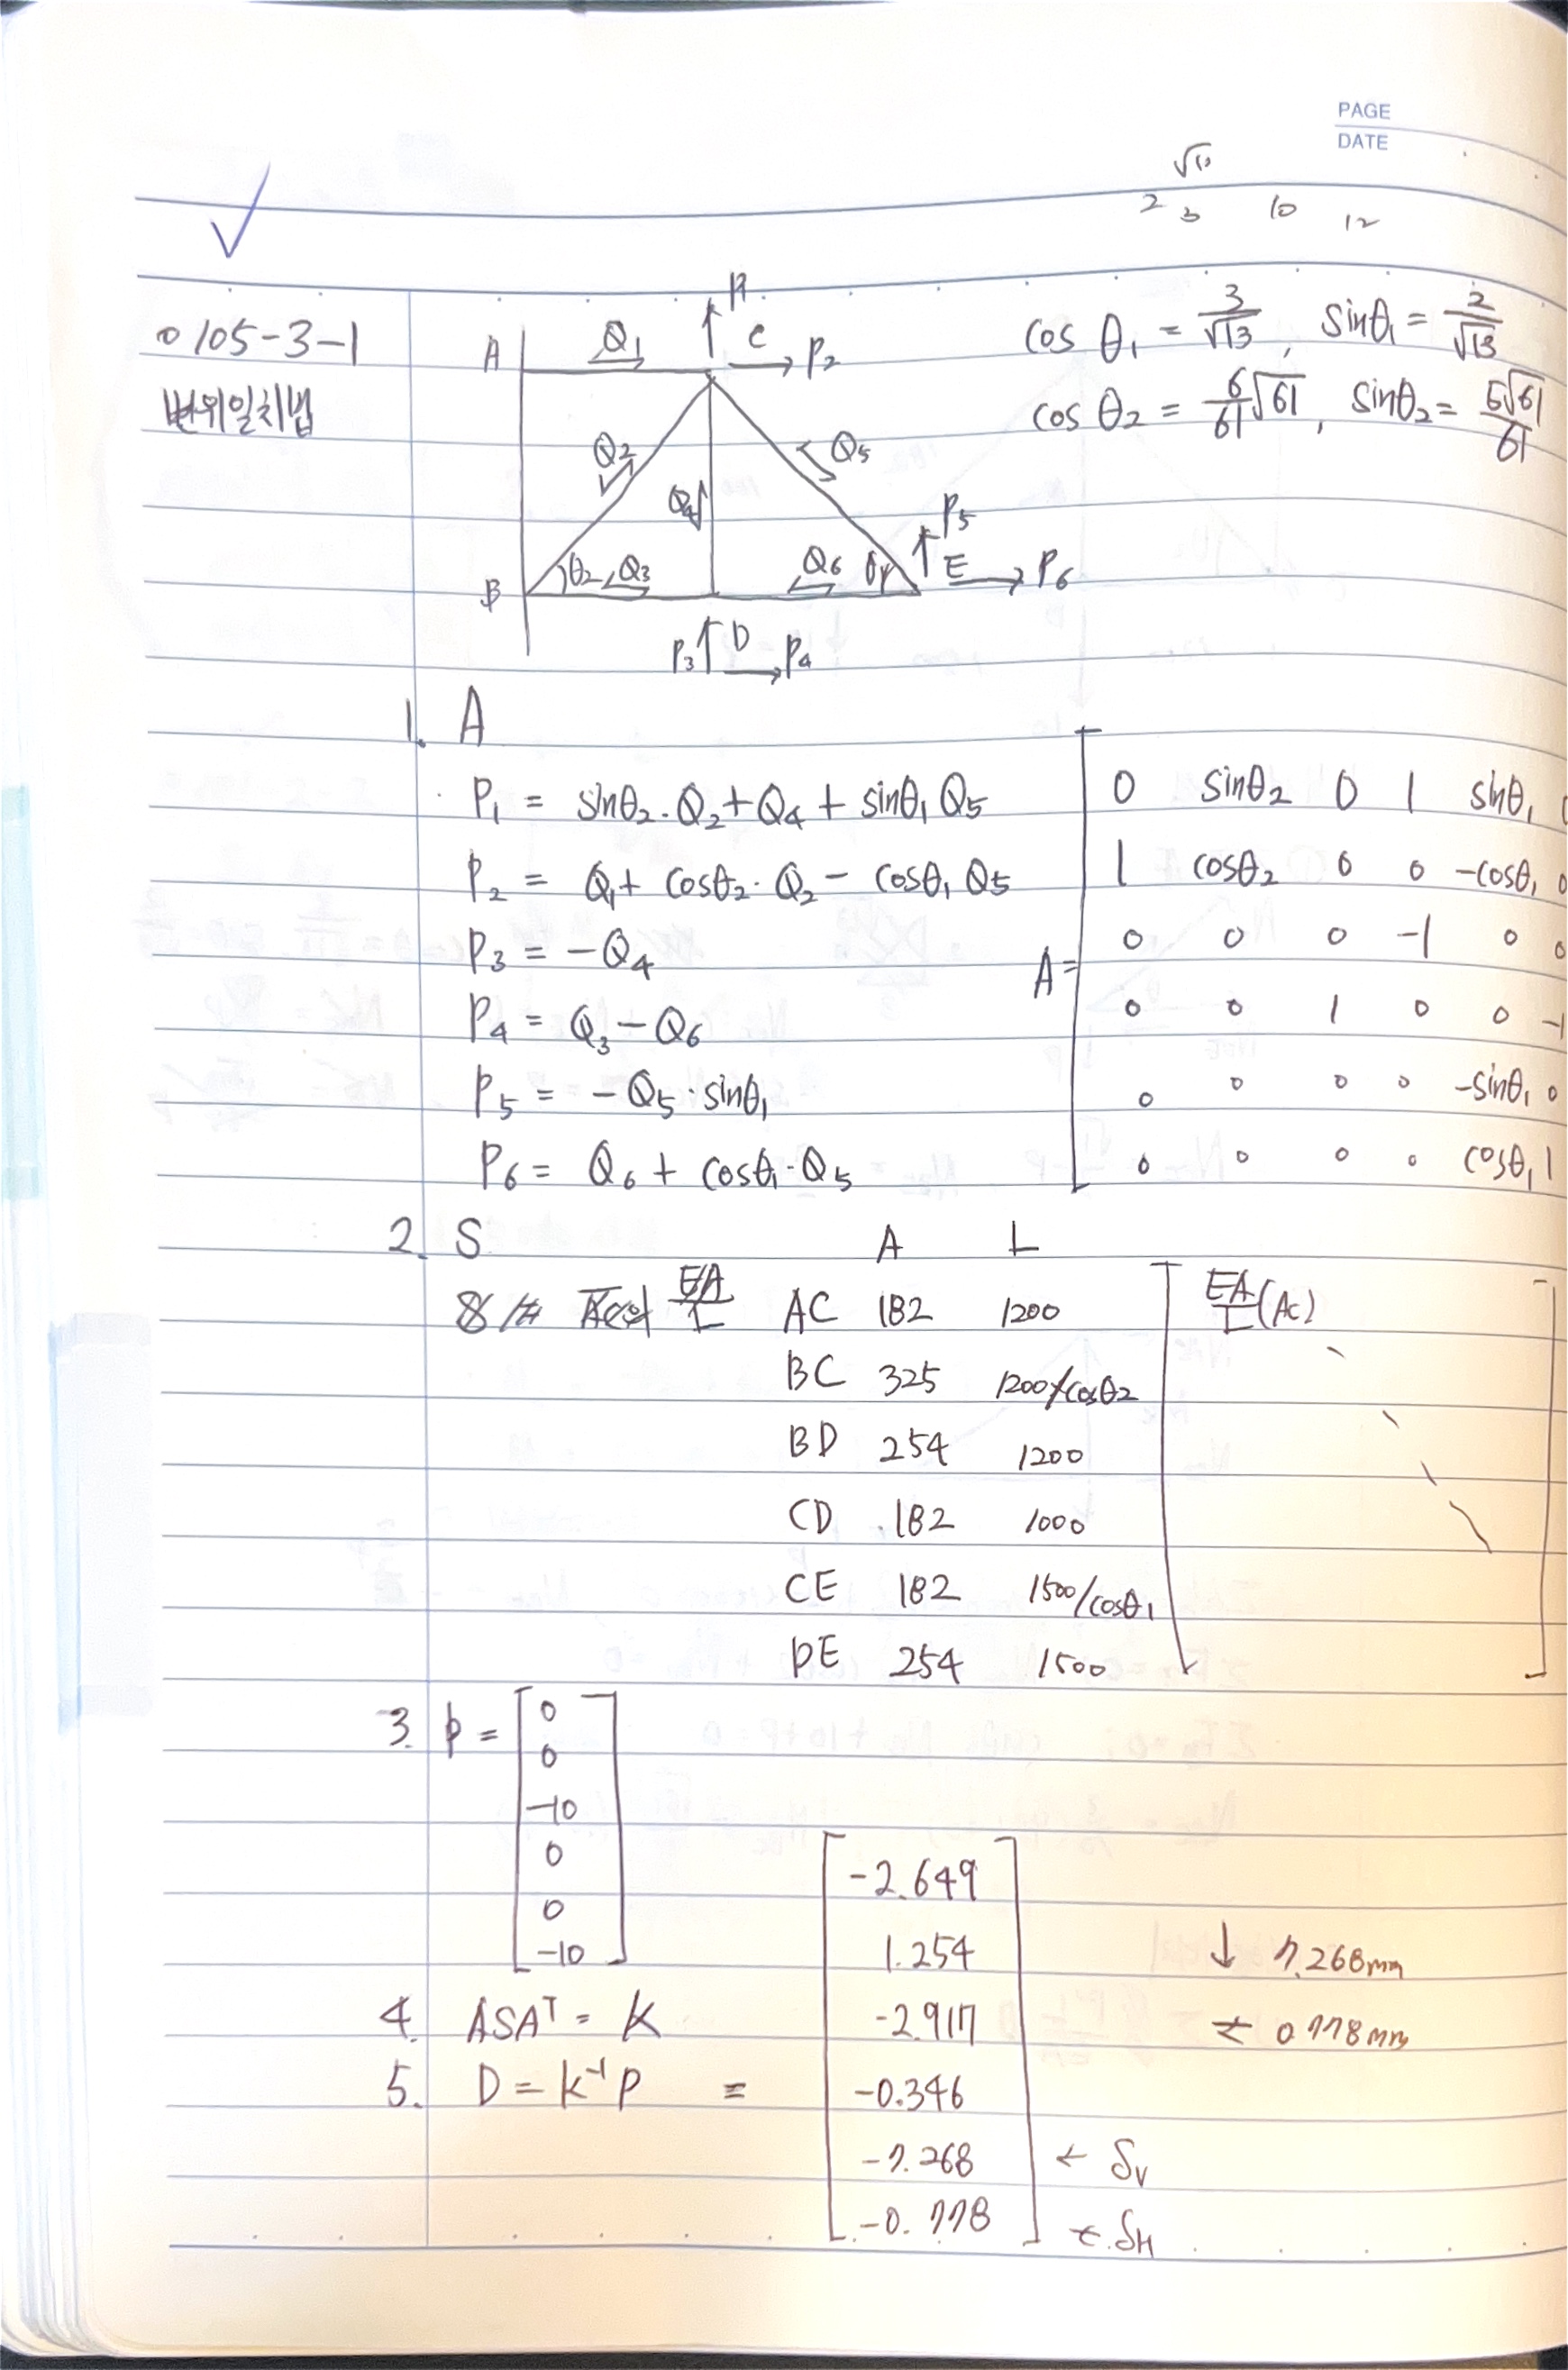 PAGE
DATE
√13
2 3 10 12
0105-3-1
변위일치법
A Q1 P1 C P2
cos θ1 = 3/√13, sinθ1 = 2/√13
cos θ2 = 6/61 √61, sinθ2 = 5√61/61
Q2 Q4 Q5
B θ2 Q3 Q6 θ1 P5 E P6
P3 D P4
1. A
P1 = sinθ2·Q2+Q4+sinθ1Q5
P2 = Q1+cosθ2·Q2-cosθ1Q5
P3 = -Q4
P4 = Q3-Q6
P5 = -Q5·sinθ1
P6 = Q6+cosθ1·Q5
A=
0 sinθ2 0 1 sinθ1 0
1 cosθ2 0 0 -cosθ1 0
0 0 0 -1 0 0
0 0 1 0 0 -1
0 0 0 0 -sinθ1 0
0 0 0 0 cosθ1 1
2. S A L
EA/L AC 182 1200 EA/L(AC)
BC 325 1200/cosθ2
BD 254 1200
CD 182 1000
CE 182 1500/cosθ1
DE 254 1500
3. P =
0
0
-10
0
0
-10
4. ASAᵀ = K
5. D = K⁻¹P =
-2.649
1.254
-2.917
-0.346
-7.268 ← δV
-0.778 ← δH
↓ 7.268mm
← 0.778mm